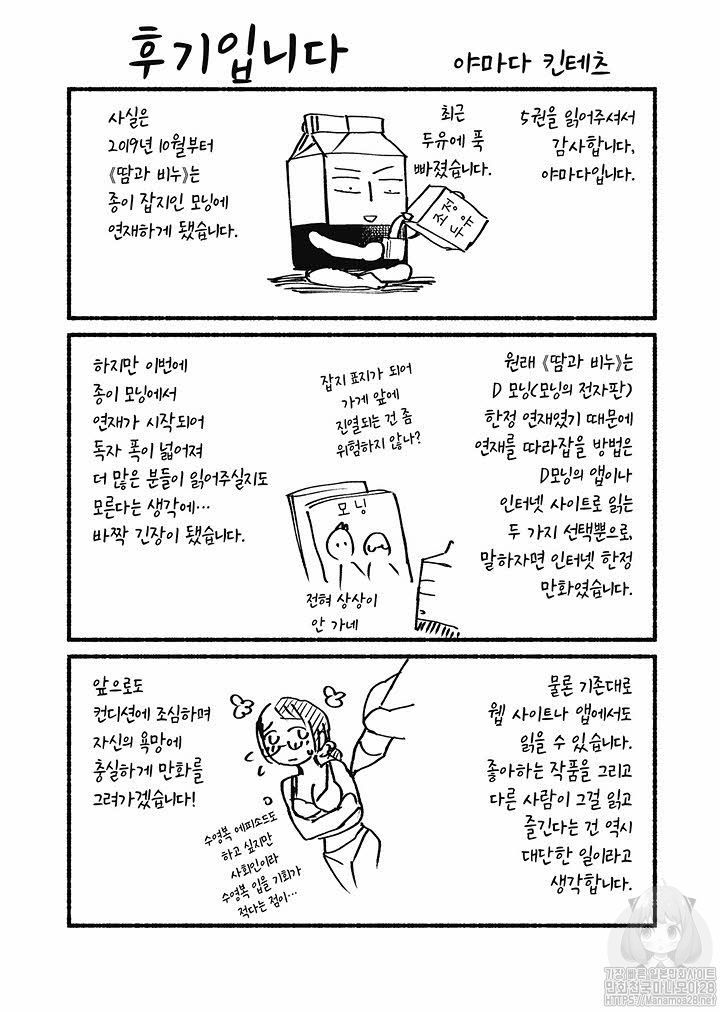 후기입니다
야마다 킨테츠
5권을 읽어주셔서
감사합니다,
야마다입니다.
최근
두유에 푹
빠졌습니다.
조정
두유
사실은
2019년 10월부터
《땀과 비누》는
종이 잡지인 모닝에
연재하게 됐습니다.
원래 《땀과 비누》는
D 모닝(모닝의 전자판)
한정 연재였기 때문에
연재를 따라잡을 방법은
D모닝의 앱이나
인터넷 사이트로 읽는
두 가지 선택뿐으로,
말하자면 인터넷 한정
만화였습니다.
잡지 표지가 되어
가게 앞에
진열되는 건 좀
위험하지 않나?
모닝
전혀 상상이
안 가네
하지만 이번에
종이 모닝에서
연재가 시작되어
독자 폭이 넓어져
더 많은 분들이 읽어주실지도
모른다는 생각에…
바짝 긴장이 됐습니다.
물론 기존대로
웹 사이트나 앱에서도
읽을 수 있습니다.
좋아하는 작품을 그리고
다른 사람이 그걸 읽고
즐긴다는 건 역시
대단한 일이라고
생각합니다.
앞으로도
컨디션에 조심하며
자신의 욕망에
충실하게 만화를
그려가겠습니다!
수영복 에피소드도
하고 싶지만
사회인이라
수영복 입을 기회가
적다는 점이…
가장 빠른 일본만화사이트
만화천국마나모아28
HTTPS://Manamoa28.net